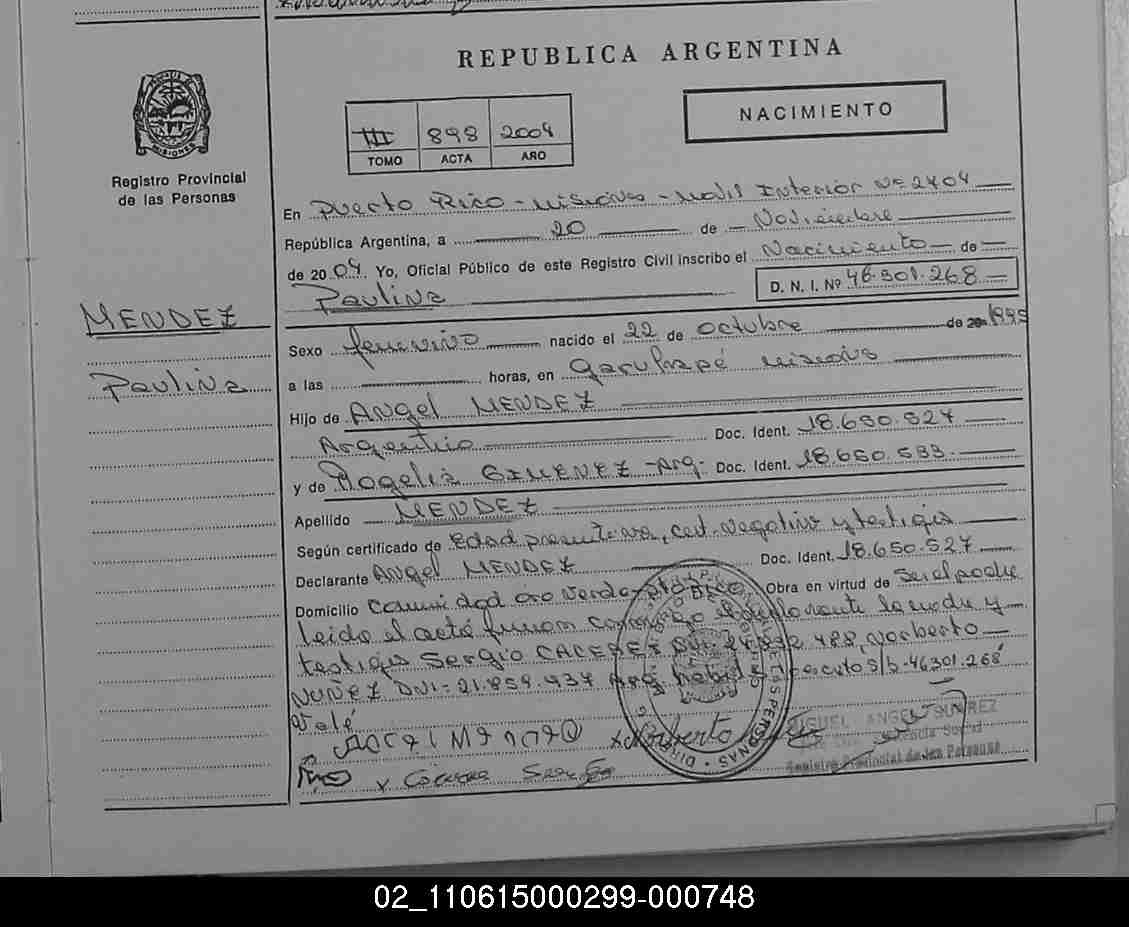 REPUBLICA ARGENTINA
NACIMIENTO
III 898 2004
TOMO ACTA AÑO
MISIONES
Registro Provincial
de las Personas
En Puerto Rico - Misiones - Movil Interior Nº 2404
República Argentina, a 20 de Noviembre
de 2004. Yo, Oficial Público de este Registro Civil inscribo el Nacimiento de
Paulina D. N. I. Nº 46.301.268
MENDEZ
Paulina
Sexo femenino nacido el 22 de octubre de 20 1995
a las horas, en Garuhapé Misiones
Hijo de Angel MENDEZ
Argentino Doc. Ident. 18.650.527
y de Rogelia GIMENEZ - Arg- Doc. Ident. 18.650.533
Apellido MENDEZ
Según certificado de Edad presuntiva, cert. negativo y testigos
Declarante Angel MENDEZ Doc. Ident. 18.650.527
Domicilio Comunidad oro verde Pto Rico Obra en virtud de Ser el padre
leido el acta firman conmigo el declarante la madre y
testigos Sergio CACERES 488, Norberto
NUÑEZ DNI: 21.859.937 Arg. s/b-46301.268
Vale
Norberto
x Caceres Sergio
MIGUEL ANGEL SUAREZ
Registro Provincial de las Personas
02_110615000299-000748